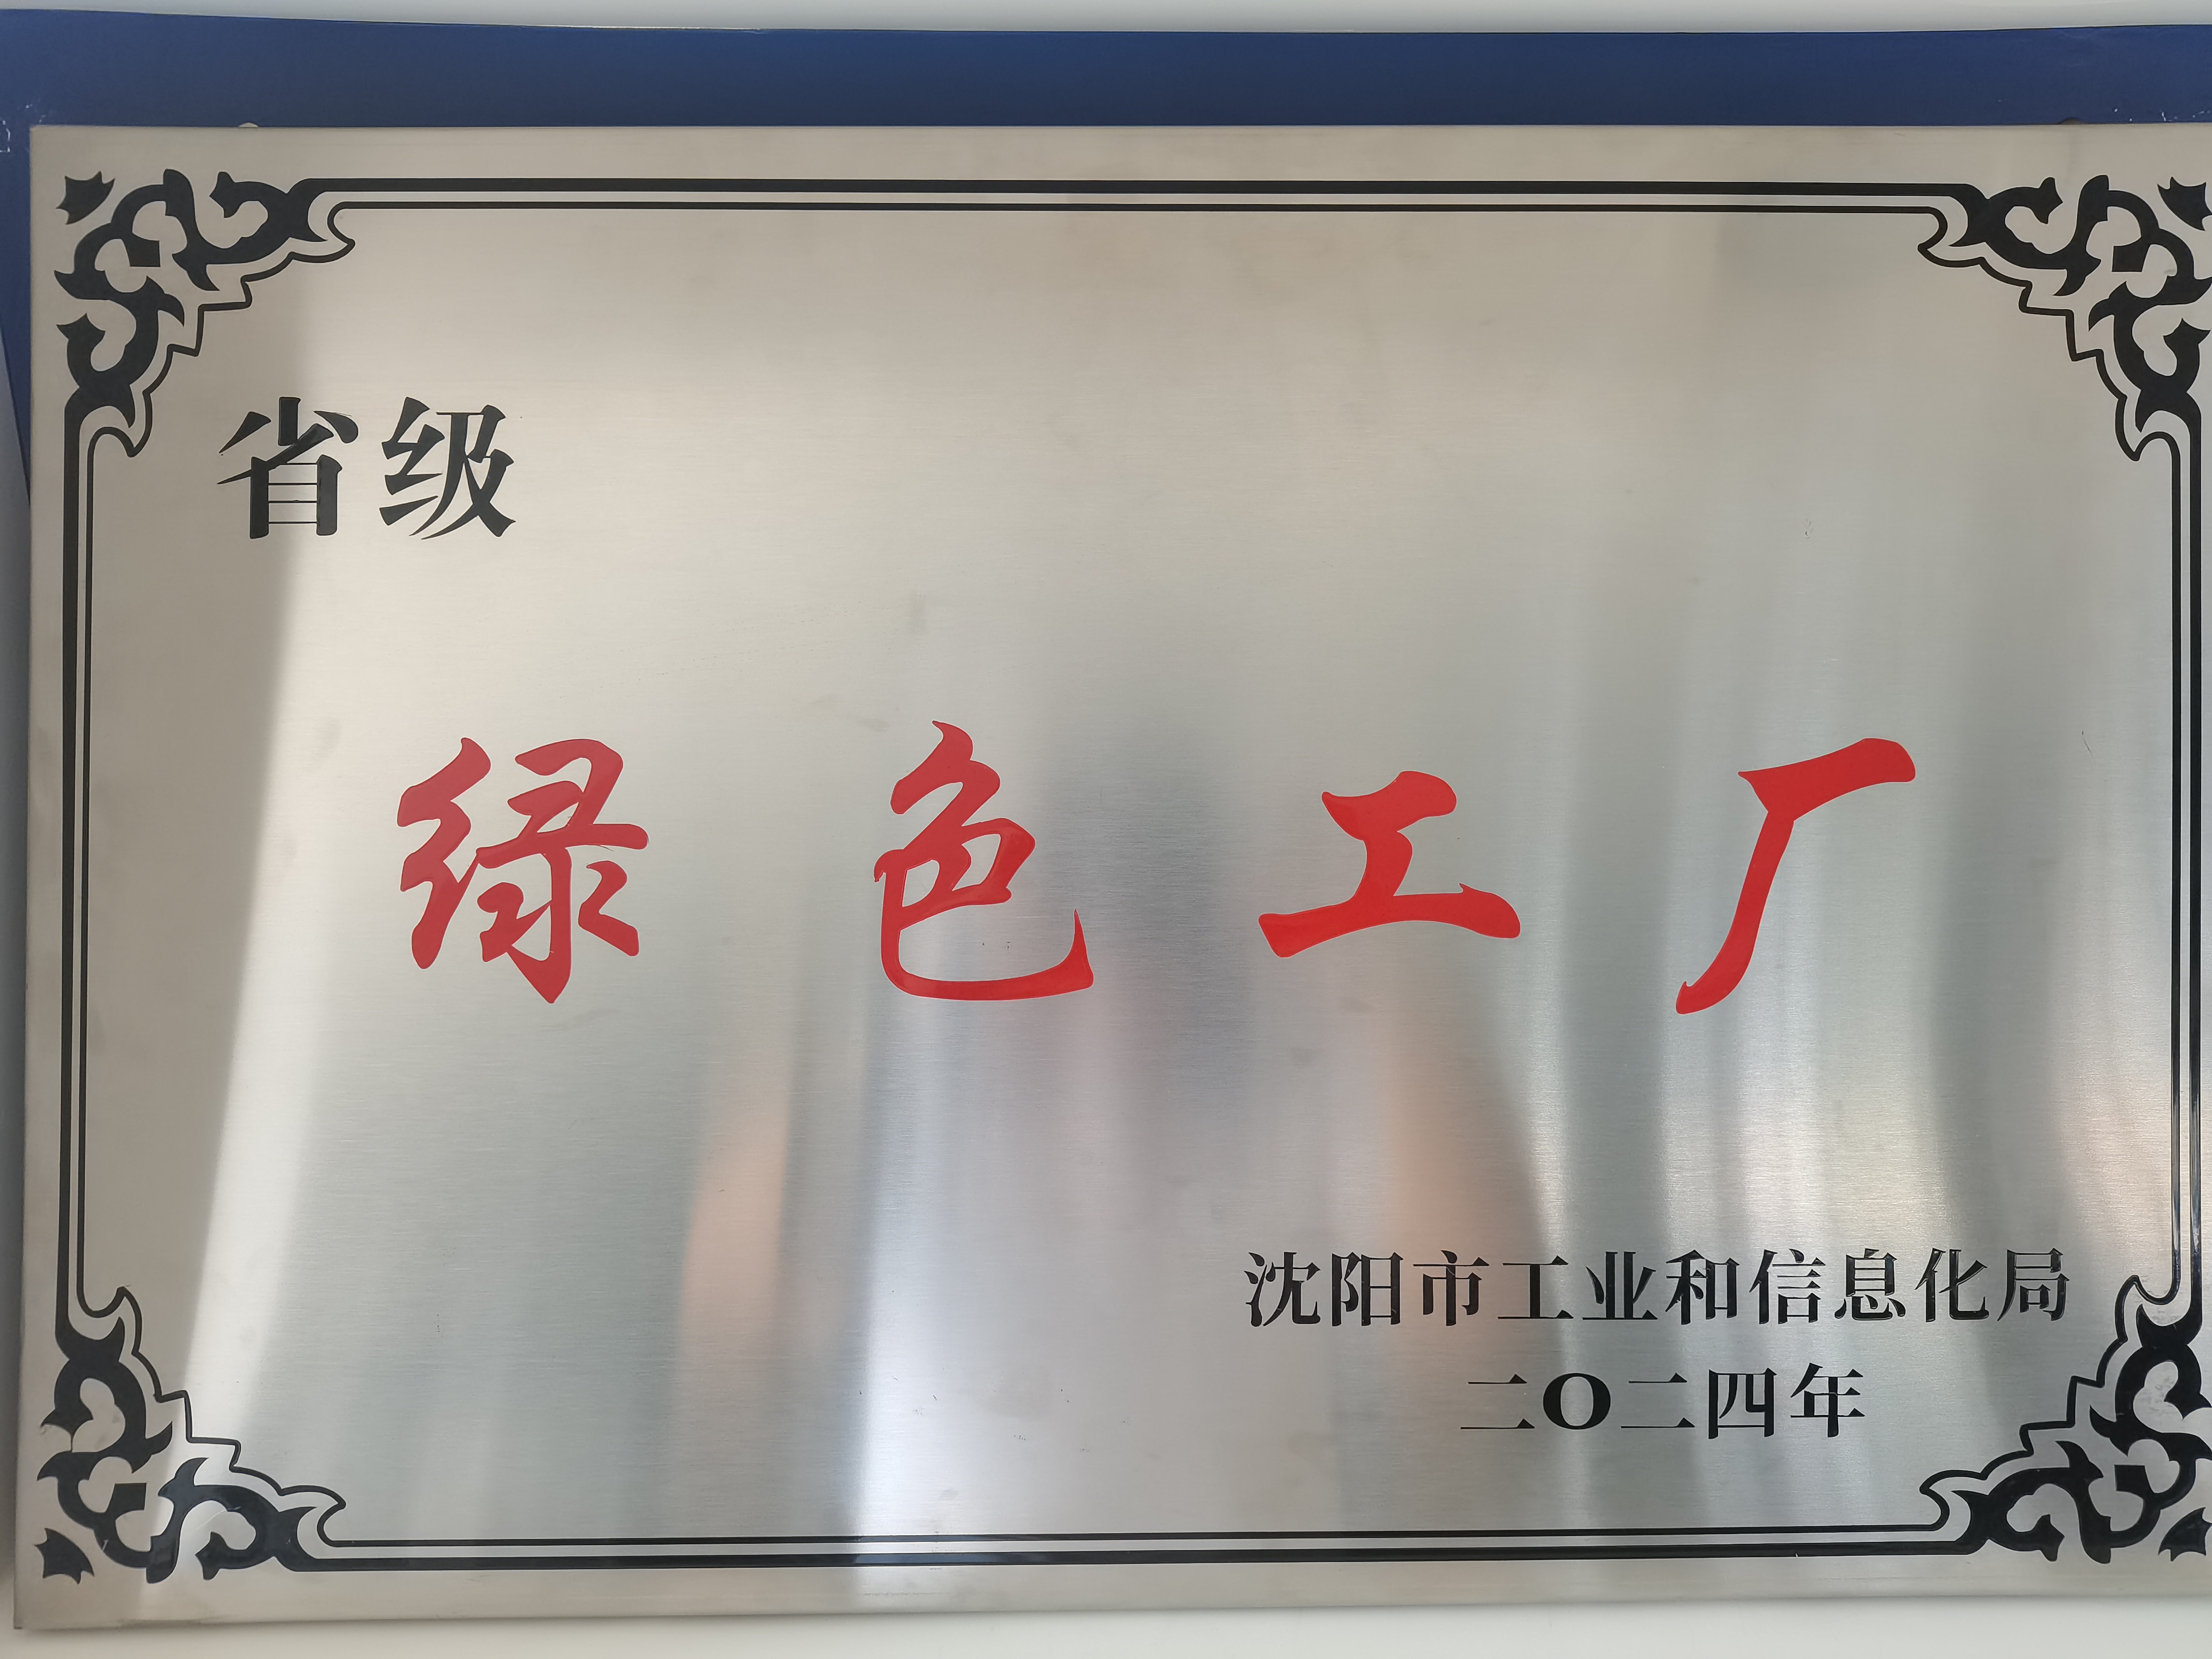 省级
绿色工厂
沈阳市工业和信息化局
二O二四年